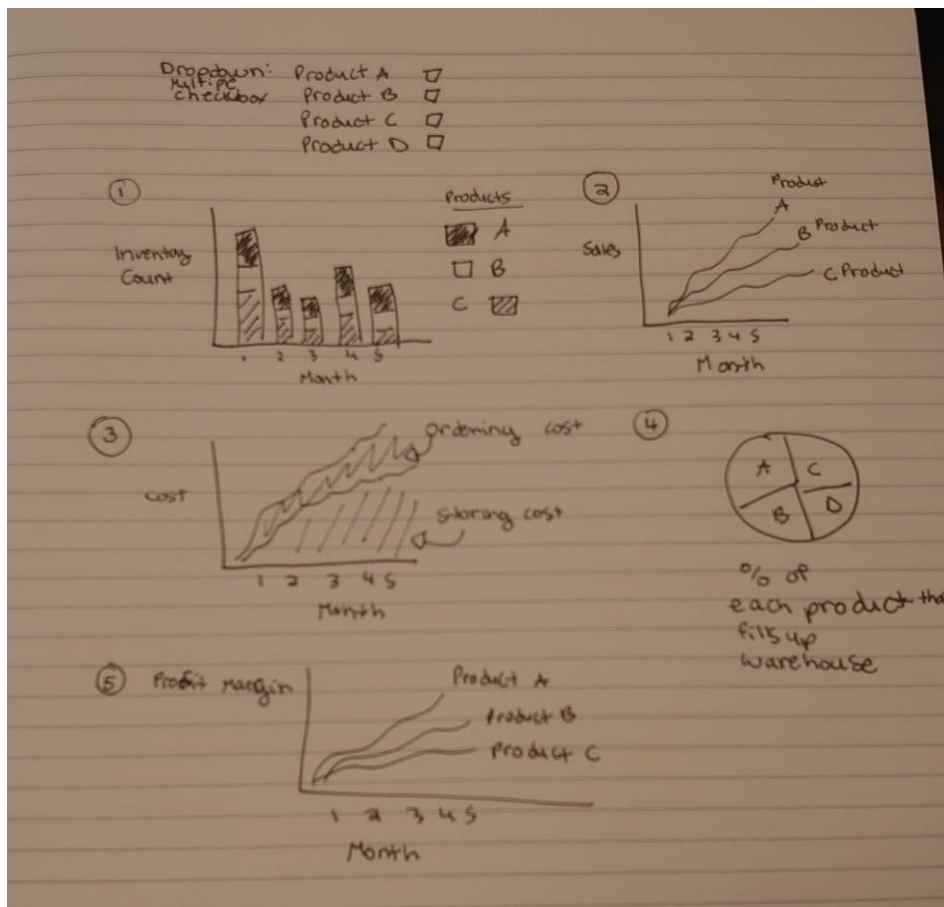 Dropdown: Product A
Multipe
checkbox Product B
Product C
Product D
1
Inventory
Count
1 2 3 4 5
Month
Products
A
B
C
2
Sales
Product
A
B Product
C Product
1 2 3 4 5
Month
3
Cost
Ordering cost
Storing cost
1 2 3 4 5
Month
4
A C
B D
% of
each product tha
fills up
warehouse
5 Profit Margin
Product A
Product B
Product C
1 2 3 4 5
Month